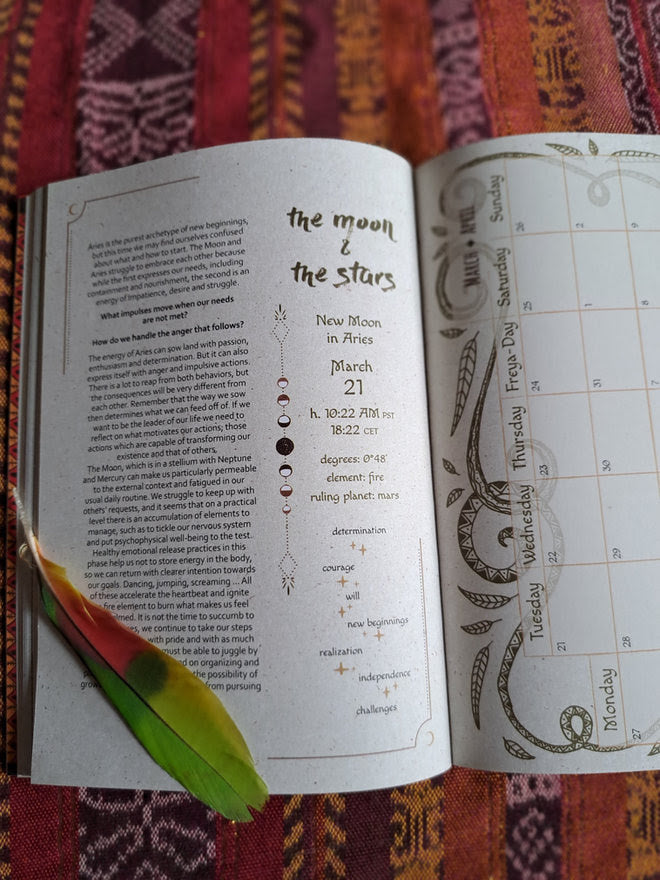 Aries is the purest archetype of new beginnings,
but this time we may find ourselves confused
about what and how to start. The Moon and
Aries struggle to embrace each other because
while the first expresses our needs, including
containment and nourishment, the second is an
energy of impatience, desire and struggle.
What impulses move when our needs
are not met?
How do we handle the anger that follows?
The energy of Aries can sow land with passion,
enthusiasm and determination. But it can also
express itself with anger and impulsive actions.
There is a lot to reap from both behaviors, but
the consequences will be very different from
each other. Remember that the way we sow
then determines what we can feed off of. If we
want to be the leader of our life we need to
reflect on what motivates our actions; those
actions which are capable of transforming our
existence and that of others,
The Moon, which is in a stellium with Neptune
and Mercury can make us particularly permeable
to the external context and fatigued in our
usual daily routine. We struggle to keep up with
others' requests, and it seems that on a practical
level there is an accumulation of elements to
manage, such as to tickle our nervous system
and put psychophysical well-being to the test.
Healthy emotional release practices in this
phase help us not to store energy in the body,
so we can return with clearer intention towards
our goals. Dancing, jumping, screaming ... All
of these accelerate the heartbeat and ignite
fire element to burn what makes us feel
It is not the time to succumb to
we continue to take our steps
with pride and with as much
must be able to juggle by
on organizing and
the possibility of
from pursuing
the moon
&
the stars
New Moon
in Aries
March
21
h. 10:22 AM PST
18:22 CET
degrees: 0°48'
element: fire
ruling planet: mars
determination
courage
will
new beginnings
realization
independence
challenges
MARCH APRIL
Sunday
26
2
9
Saturday
25
1
8
Freya-Day
24
31
7
Thursday
23
30
Wednesday
22
29
Tuesday
21
28
Monday
27